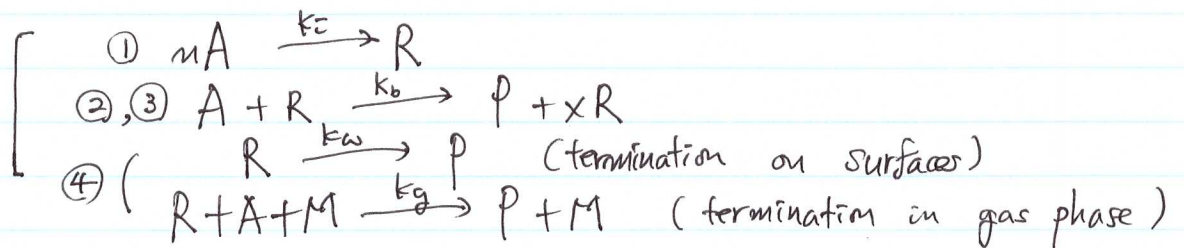 ① nA ki→ R
②,③ A + R kb→ P + xR
④ ( R kw→ P (termination on surfaces)
R+A+M kg→ P+M (termination in gas phase)